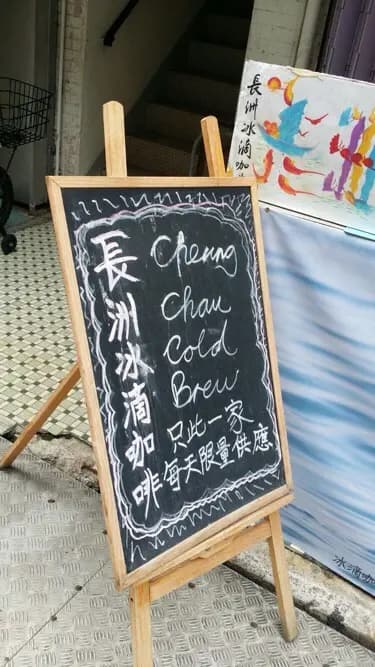 長洲冰滴咖啡
Cheung
Chau
Cold
Brew
只此一家
每天限量供應
長洲冰滴咖
冰滴咖